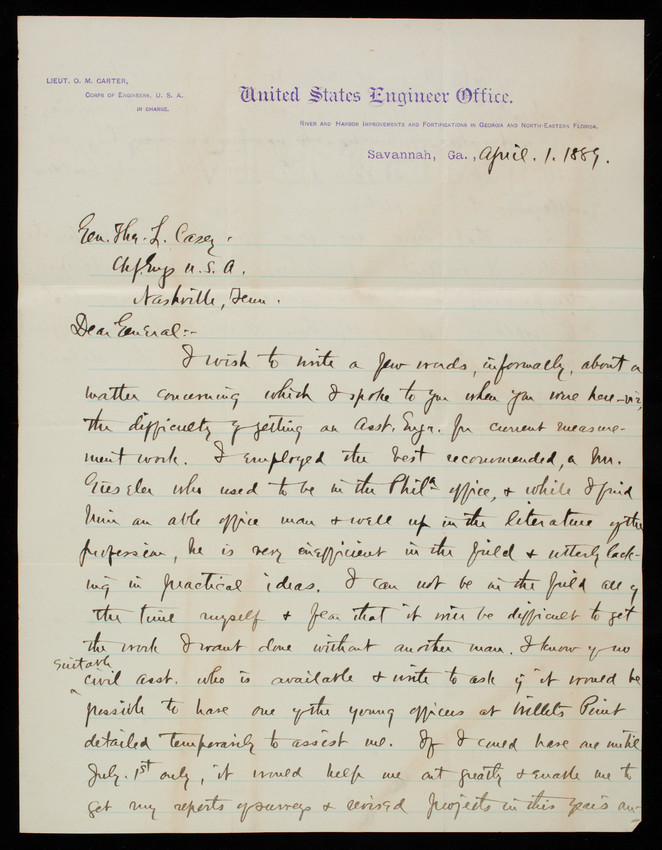 LIEUT. O. M. CARTER,
CORPS OF ENGINEERS, U. S. A.
IN CHARGE.
United States Engineer Office.
RIVER AND HARBOR IMPROVEMENTS AND FORTIFICATIONS IN GEORGIA AND NORTH-EASTERN FLORIDA.
Savannah, Ga., April. 1. 1889.
Gen. Thos. L. Casey.
Chf. Engs U. S. A.
Nashville, Tenn.
Dear General:-
I wish to write a few words, informally, about a
matter concerning which I spoke to you when you were here - viz,
the difficulty of getting an Asst. Engr. for current measure-
ment work. I employed the best recommended, a Mr.
Gieseler who used to be in the Phila office, & while I find
him an able office man & well up in the literature of the
profession, he is very inefficient in the field & utterly lack-
ing in practical ideas. I can not be in the field all of
the time myself & fear that it will be difficult to get
the work I want done without another man. I know of no
suitable
civil asst. who is available & write to ask if it would be
possible to have one of the young officers at Willets Point
detailed temporarily to assist me. If I could have one until
July. 1st only, it would help me out greatly & enable me to
get my reports of surveys & revised projects in this year's an-